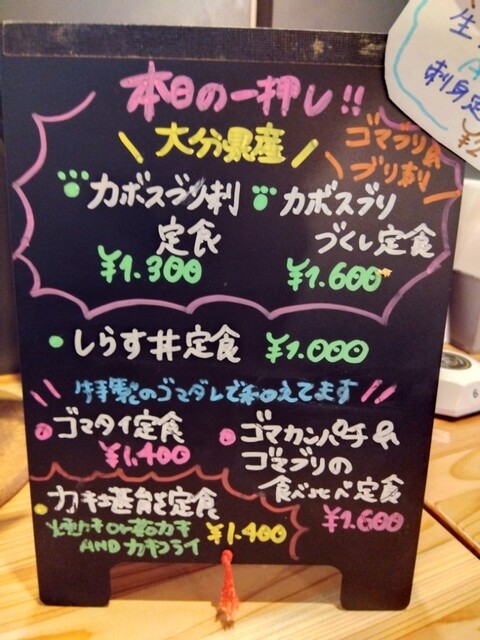 本日の一押し!!
大分県産
ゴマブリ&
ブリ刺
カボスブリ刺
定食
¥1.300
カボスブリ
づくし定食
¥1.600
しらす丼定食 ¥1.000
特製のゴマダレで和えてます
ゴマタイ定食
¥1.400
ゴマカンパチ&
ゴマブリの
食べ比べ定食
¥1.600
カキ堪能定食
焼カキor蒸カキ
ANDカキフライ
¥1.400
生
刺身定